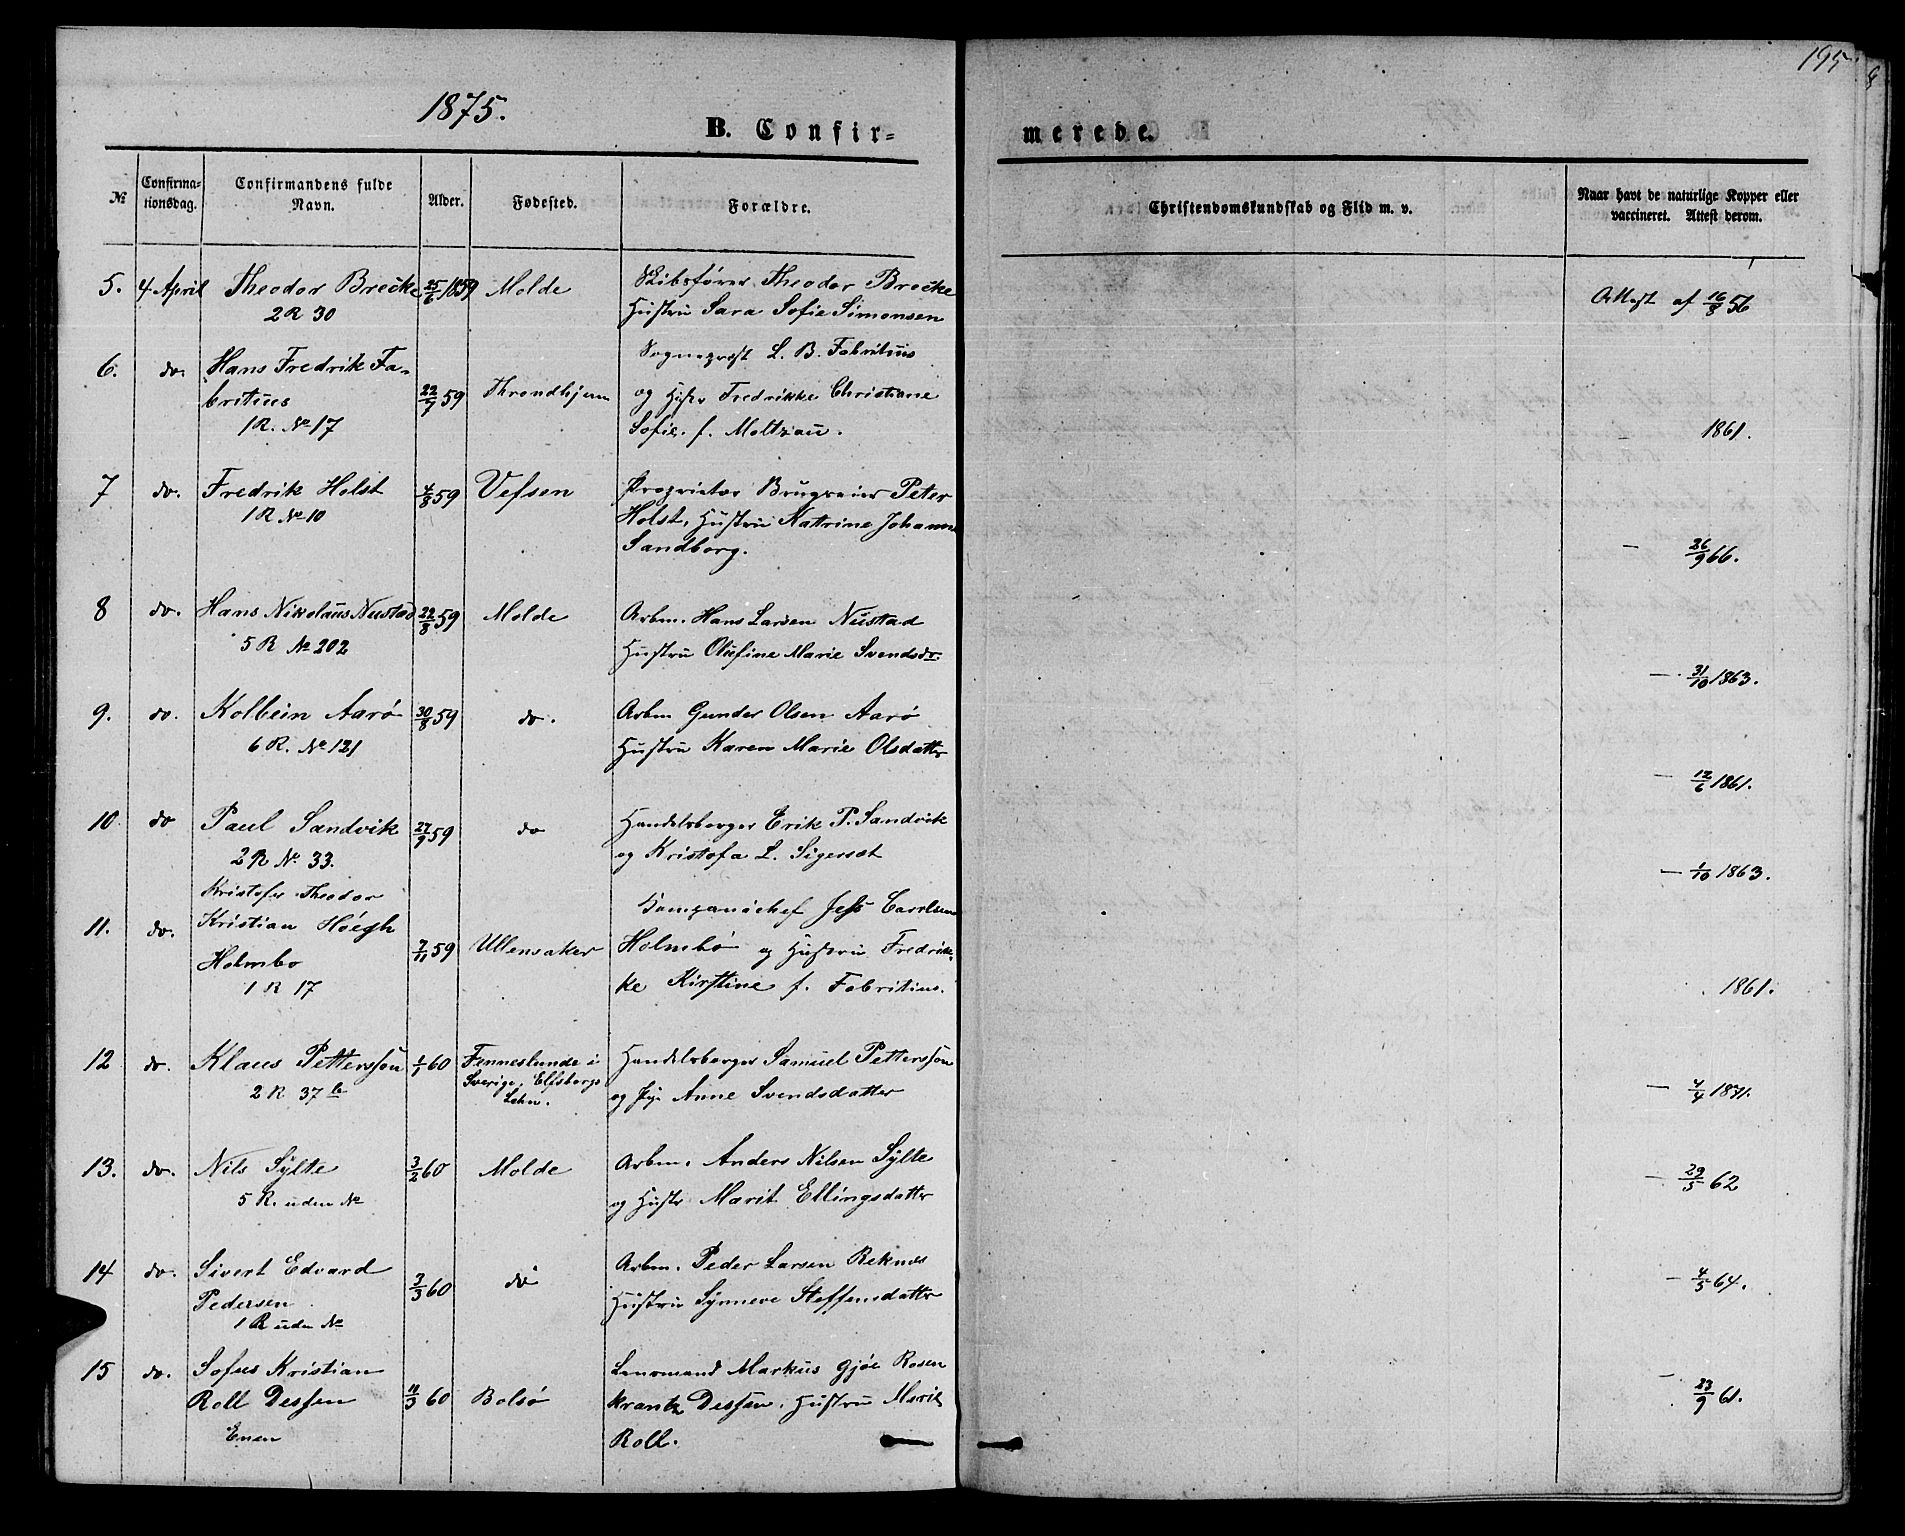 195
1875.
B. Confir-
merede.
№
Confirma-
tionsdag.
Confirmandens fulde
Navn.
Alder.
Fødested.
Forældre.
Christendomskundskab og Flid m. v.
Naar havt de naturlige Kopper eller
vaccineret. Attest derom.
5. 4 April Theodor Brecke 25/6 1859 Molde Skibsfører Theodor Brecke
2 R 30 Hustru Sara Sofie Simonsen
Attest af 16/8 56
6. do. Hans Fredrik Fa-
britius 22/7 59 Throndhjem
1 R. No 17
Sogneprest L. B. Fabritius
og Hustr Fredrikke Christiane
Sofie f. Moltzau.
- 1861.
7 do. Fredrik Holst 4/8 59 Vefsen Proprietær Peter
1 R No 10 Holst, Hustru Katrine Johanne
Sandborg.
- 26/9 66.
8 do. Hans Nikolaus Neustad 22/8 59 Molde Arbm. Hans Larsen Neustad
5 R No 202 Hustru Olufine Marie Svendsdr.
- 31/10 1863.
9. do. Kolbein Aarø 30/8 59 do. Arbm Gunder Olsen Aarø
6 R. No 121 Hustru Karen Marie Olsdatter
- 12/6 1861.
10 do Paul Sandvik 27/9 59 do Handelsborger Erik P. Sandvik
2 R No 33. og Kristofa L. Sigerset
- 1/10 1863.
Kristofer Theodor
11. do. Kristian Høegh
Holmbo 7/11 59 Ullensaker
1 R 17
Kompanichef Jess Carlsen
Holmbo og Hustru Fredrik-
ke Kirstine f. Fabritius.
1861.
12 do. Klaus Pettersson 1/1 60 Fenneslunde i
Sverige, Elfsborgs
Lehn.
2 R 37 b
Handelsborger Samuel Pettersson
og Anne Svendsdatter
- 4/4 1871.
13. do. Nils Sylte 3/2 60 Molde Arbm. Anders Nilsen Sylte
5 R. uden No og Hustr Marit Ellingsdatter
- 29/5 62
14 do. Sivert Edvard
Pedersen 3/3 60 do
1 R uden No
Arbm. Peder Larsen Reknes
Hustru Synneve Steffensdatter
- 4/5 64.
15 do. Sofus Kristian
Roll Dessen 11/3 60 Bolsø
Enen
Lensmand Markus Gjøe Rosen
krantz Dessen, Hustru Marit
Roll.
- 23/9 61.